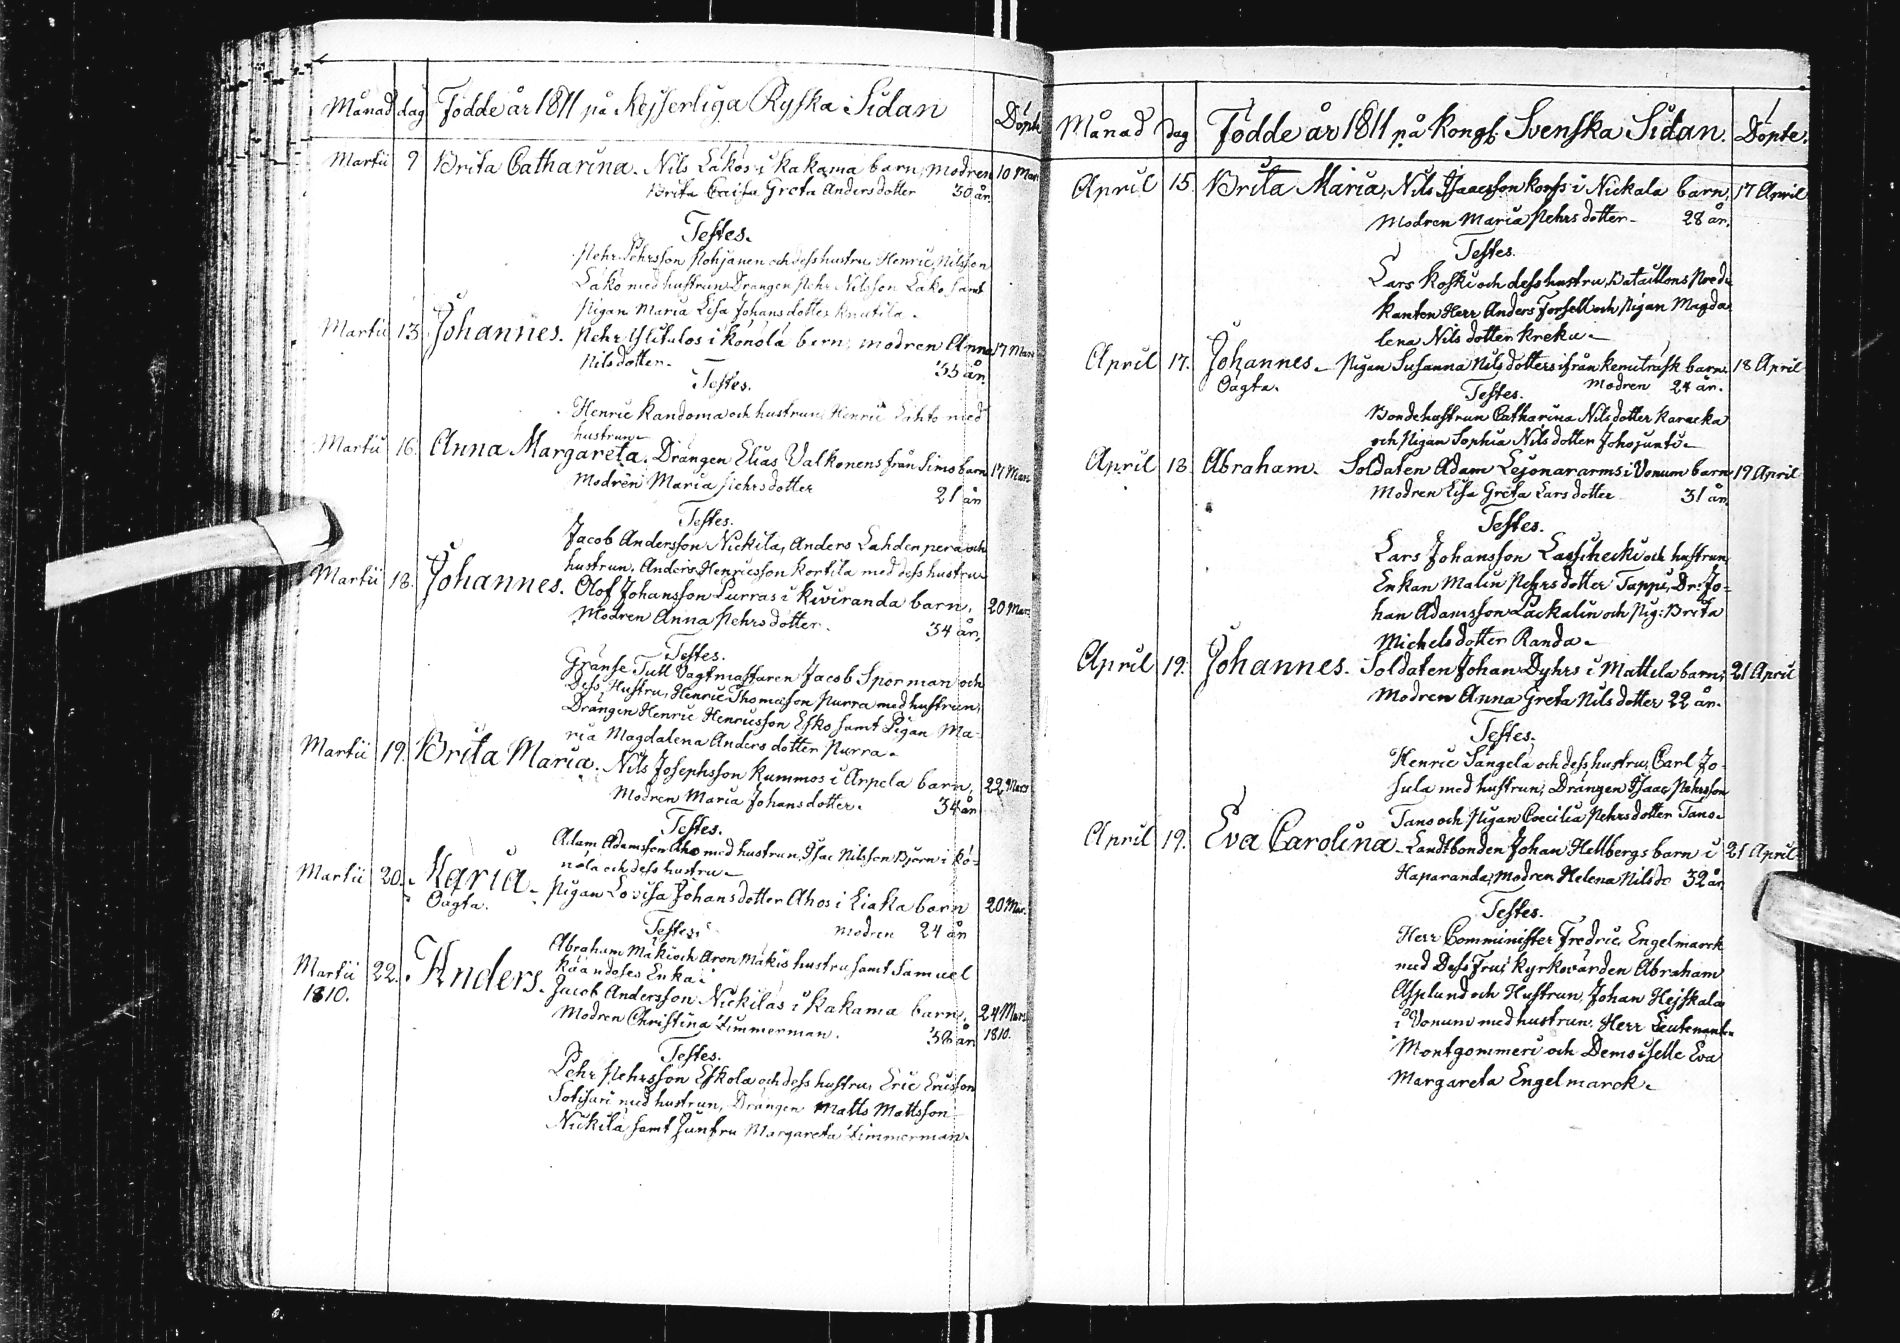 Månad dag Födde år 1811 på Kejserliga Ryska Sidan Döpte
Martii 9 Brita Catharina. Nils Lakos i Kakama barn, modren 10 Mar:
Brita Caisa Greta Andersdotter 30 år.
Testes.
Pehr Pehrsson Pohjanen och dess hustru, Henric Nilsson
Lako med hustrun, Drängen Pehr Nilsson Lako, samt
Pigan Maria Lisa Johansdotter Knutila.
Martii 13. Johannes. Pehr Ylitulos i Könölä barn, modren Anna 17 Mars
Nilsdotter. 33 år.
Testes.
Henric Kandoma och hustrun, Henric Lahto med
hustrun.
Martii 16. Anna Margareta. Drängen Elias Valkonens från Simo barn 17 Mars
Modren Maria Pehrsdotter 21 år
Testes.
Jacob Andersson Nickila, Anders Lahdenpera och
hustrun, Anders Henricsson Kortila med dess hustru
Martii 18. Johannes. Olof Johansson Lurras i Kiviranda barn, 20 Mar:
Modren Anna Pehrsdotter. 34 år,
Testes.
Gränse Tull Vagtmästaren Jacob Sporman och
Dess Hustru, Henric Thomasson Purra med hustrun,
Drängen Henric Henricsson Esko samt Pigan Ma-
ria Magdalena Andersdotter Purra.
Martii 19. Brita Maria. Nils Josephsson Kummos i Arpela barn, 22 Mars
Modren Maria Johansdotter. 34 år
Testes.
Adam Adamsson Aho med hustrun, Isac Nilsson Björn i Kö-
nölä och dess hustru.
Martii 20. Maria. Pigan Lovisa Johansdotter Ahos i Liaka barn 20 Mar.
Oägta. modren 24 år
Testes:
Abraham Mäki och Aron Mäkis hustru samt Samuel
Käändoses Enka.
Martii 22. Anders. Jacob Andersson Nickilas i Kakama barn, 24 Mars
1810. Modren Christina Zimmerman. 38 år 1810.
Testes.
Pehr Pehrsson Eskola och dess hustru, Eric Ericsson
Sotisari med hustrun, Drängen Matts Mattsson
Nickila samt Junfru Margareta Zimmerman.
Månad Dag Födde år 1811 på Kongl: Svenska Sidan. Döpte.
April 15. Brita Maria, Nils Isaacsson Korfs i Nickala barn, 17 April
Modren Maria Pehrsdotter. 28 år.
Testes.
Lars Koski och dess hustru, Bataillons Predi-
kanten Herr Anders Forsell och Pigan Magda
lena Nilsdotter Kreku.
April 17. Johannes. Pigan Susanna Nilsdotters ifrån Kemiträsk barn. 18 April
Oägta. Modren 24 år.
Testes.
Bondehustrun Catharina Nilsdotter Karacka
och Pigan Sophia Nilsdotter Johojunti.
April 18. Abraham. Soldaten Adam Lejonararms i Vonum barn 19 April
Modren Lisa Greta Larsdotter 31 år.
Testes.
Lars Johansson Laschecki och hustrun
Enkan Malin Pehrsdotter Tappi, Dr: Jo-
han Adamsson Lackalin och Pig: Brita
Michelsdotter Randa.
April 19. Johannes. Soldaten Johan Dyhrs i Mattila barn; 21 April
Modren Anna Greta Nilsdotter 22 år.
Testes.
Henric Sangela och dess hustru, Carl Jo-
sula med hustrun, Drängen Isaac Pehrsson
Tano och Pigan Coecilia Pehrsdotter Tano.
April 19. Eva Carolina. Landtbonden Johan Hellbergs barn i 21 April.
Haparanda, modren Helena Nilsdr 32 år
Testes.
Herr Comminister Fredric Engelmarck
med Dess Fru; Kyrkovärden Abraham
Asplund och Hustrun, Johan Hejskala
i Vonum med hustrun. Herr Lieutenanten
Montgommeri och Demoiselle Eva
Margareta Engelmarck.